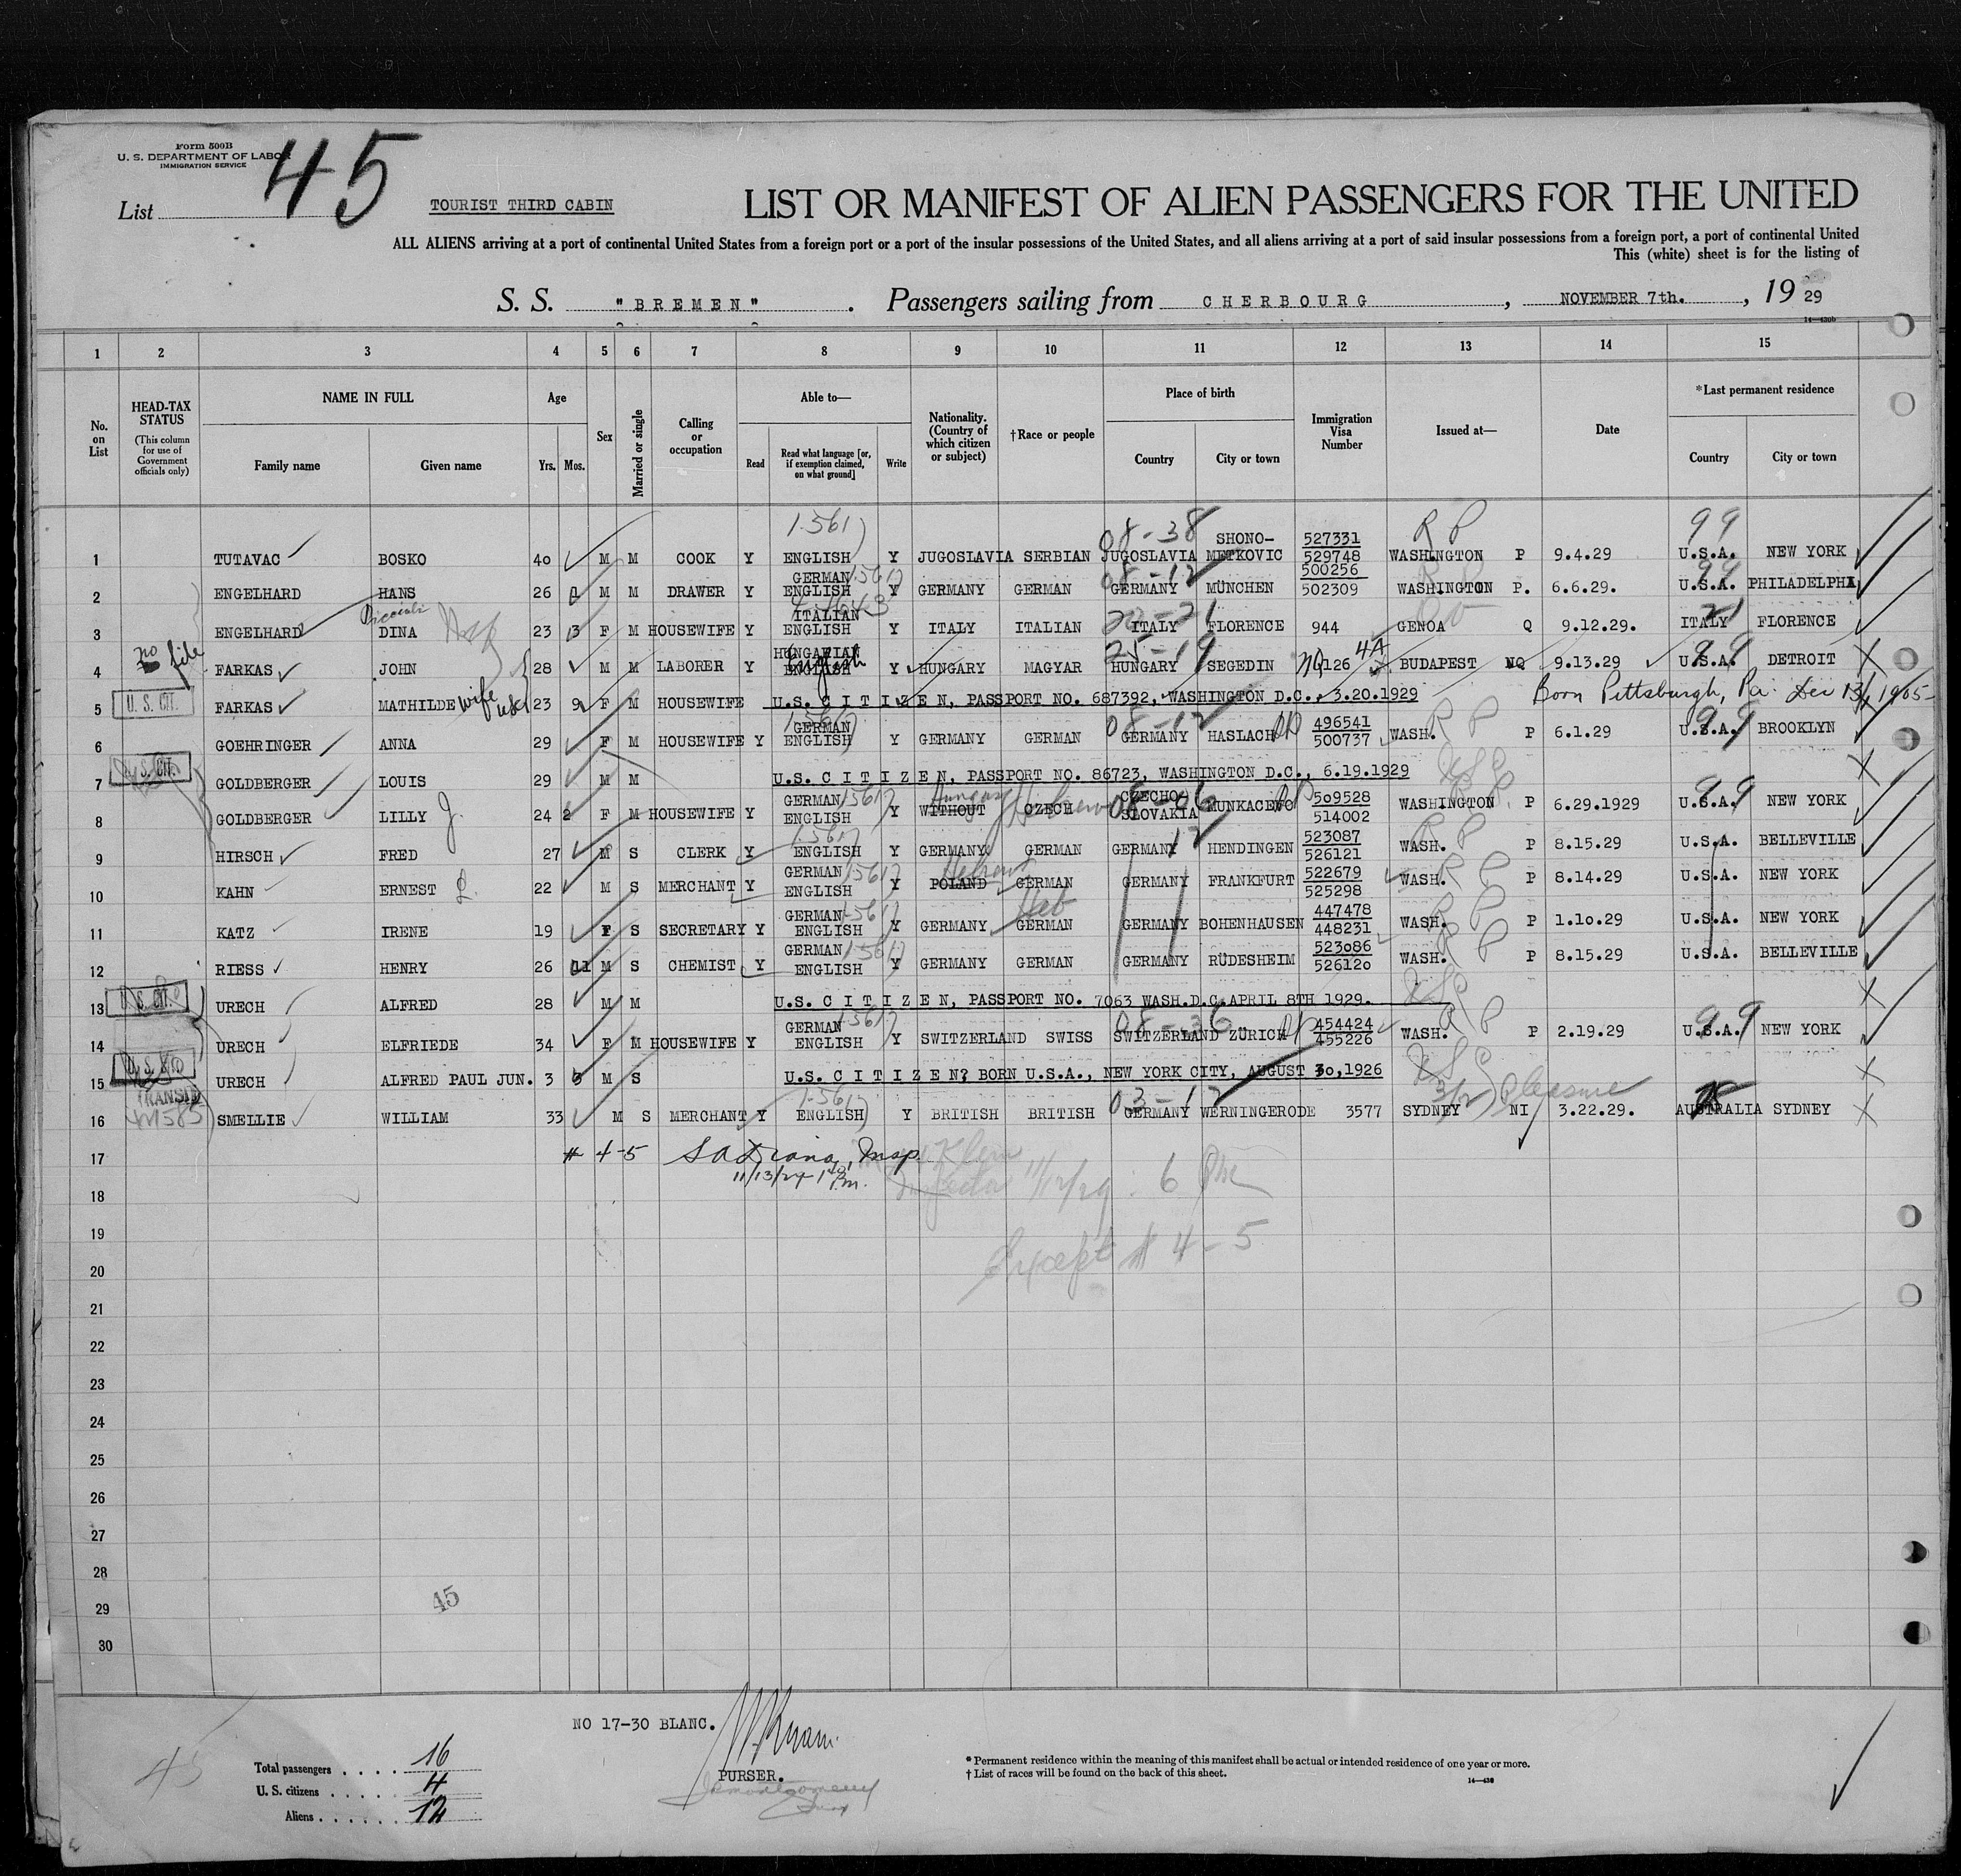 Form 500B
U. S. DEPARTMENT OF LABOR
IMMIGRATION SERVICE
List 45
TOURIST THIRD CABIN
LIST OR MANIFEST OF ALIEN PASSENGERS FOR THE UNITED
ALL ALIENS arriving at a port of continental United States from a foreign port or a port of the insular possessions of the United States, and all aliens arriving at a port of said insular possessions from a foreign port, a port of continental United
This (white) sheet is for the listing of
S. S. "BREMEN" . Passengers sailing from CHERBOURG , NOVEMBER 7th. , 19 29
14—430b
1 2 3 4 5 6 7 8 9 10 11 12 13 14 15
No. on List
HEAD-TAX STATUS
(This column for use of Government officials only)
NAME IN FULL
Family name Given name
Age
Yrs. Mos.
Sex
Married or single
Calling or occupation
Able to—
Read
Read what language [or, if exemption claimed, on what ground]
Write
Nationality. (Country of which citizen or subject)
†Race or people
Place of birth
Country City or town
Immigration Visa Number
Issued at—
Date
*Last permanent residence
Country City or town
1 TUTAVAC BOSKO 40 M M COOK Y ENGLISH Y JUGOSLAVIA SERBIAN JUGOSLAVIA SHONO- METKOVIC 527331 529748 WASHINGTON P 9.4.29 U.S.A. NEW YORK
1-561) 08-38 R P 99
2 ENGELHARD HANS 26 M M DRAWER Y GERMAN ENGLISH Y GERMANY GERMAN GERMANY MÜNCHEN 500256 502309 WASHINGTON P. 6.6.29. U.S.A. PHILADELPHIA
3 ENGELHARD DINA 23 3 F M HOUSEWIFE Y ITALIAN ENGLISH Y ITALY ITALIAN ITALY FLORENCE 944 GENOA Q 9.12.29. ITALY FLORENCE
no file
4 FARKAS JOHN 28 M M LABORER Y HUNGARIAN ENGLISH English Y HUNGARY MAGYAR HUNGARY SEGEDIN NQ 126 4A BUDAPEST NQ 9.13.29 U.S.A. DETROIT
25-19
U. S. CIT.
5 FARKAS MATHILDE wife 23 9 F M HOUSEWIFE U.S. CITIZEN, PASSPORT NO. 687392, WASHINGTON D.C., 3.20.1929 Born Pittsburgh, Pa. Dec 13, 1905
6 GOEHRINGER ANNA 29 F M HOUSEWIFE Y GERMAN ENGLISH Y GERMANY GERMAN GERMANY HASLACH 496541 500737 WASH. P 6.1.29 U.S.A. BROOKLYN
U. S. CIT.
7 GOLDBERGER LOUIS 29 M M U.S. CITIZEN, PASSPORT NO. 86723, WASHINGTON D.C., 6.19.1929
8 GOLDBERGER LILLY J. 24 2 F M HOUSEWIFE Y GERMAN ENGLISH Y WITHOUT CZECH CZECHO- SLOVAKIA MUNKACEVO 509528 514002 WASHINGTON P 6.29.1929 U.S.A. NEW YORK
9 HIRSCH FRED 27 M S CLERK Y ENGLISH Y GERMANY GERMAN GERMANY HENDINGEN 523087 526121 WASH. P 8.15.29 U.S.A. BELLEVILLE
10 KAHN ERNEST L. 22 M S MERCHANT Y GERMAN ENGLISH Y POLAND GERMAN GERMANY FRANKFURT 522679 525298 WASH. P 8.14.29 U.S.A. NEW YORK
Hebrew
11 KATZ IRENE 19 F S SECRETARY Y GERMAN ENGLISH Y GERMANY GERMAN GERMANY BOHENHAUSEN 447478 448231 WASH. P 1.10.29 U.S.A. NEW YORK
Heb
12 RIESS HENRY 26 11 M S CHEMIST Y GERMAN ENGLISH Y GERMANY GERMAN GERMANY RÜDESHEIM 523086 526120 WASH. P 8.15.29 U.S.A. BELLEVILLE
U. S. CIT.
13 URECH ALFRED 28 M M U.S. CITIZEN, PASSPORT NO. 7063 WASH.D.C.APRIL 8TH 1929.
14 URECH ELFRIEDE 34 F M HOUSEWIFE Y GERMAN ENGLISH Y SWITZERLAND SWISS SWITZERLAND ZÜRICH 454424 455226 WASH. P 2.19.29 U.S.A. NEW YORK
15 URECH ALFRED PAUL JUN. 3 3 M S U.S. CITIZEN? BORN U.S.A., NEW YORK CITY, AUGUST 30,1926
TRANSIT
16 SMELLIE WILLIAM 33 M S MERCHANT Y ENGLISH Y BRITISH BRITISH GERMANY WERNINGERODE 3577 SYDNEY NI 3.22.29. AUSTRALIA SYDNEY
03-12 Pleasure
17 # 4-5 Insp.
11/13/29 1 P.m.
11/12/29 6 PM
18
19
Except # 4-5
20
21
22
23
24
25
26
27
28
29
45
30
NO 17-30 BLANC.
PURSER.
45
Total passengers . . . . 16
U. S. citizens . . . . . 4
Aliens . . . . . . 12
* Permanent residence within the meaning of this manifest shall be actual or intended residence of one year or more.
† List of races will be found on the back of this sheet.
14—430